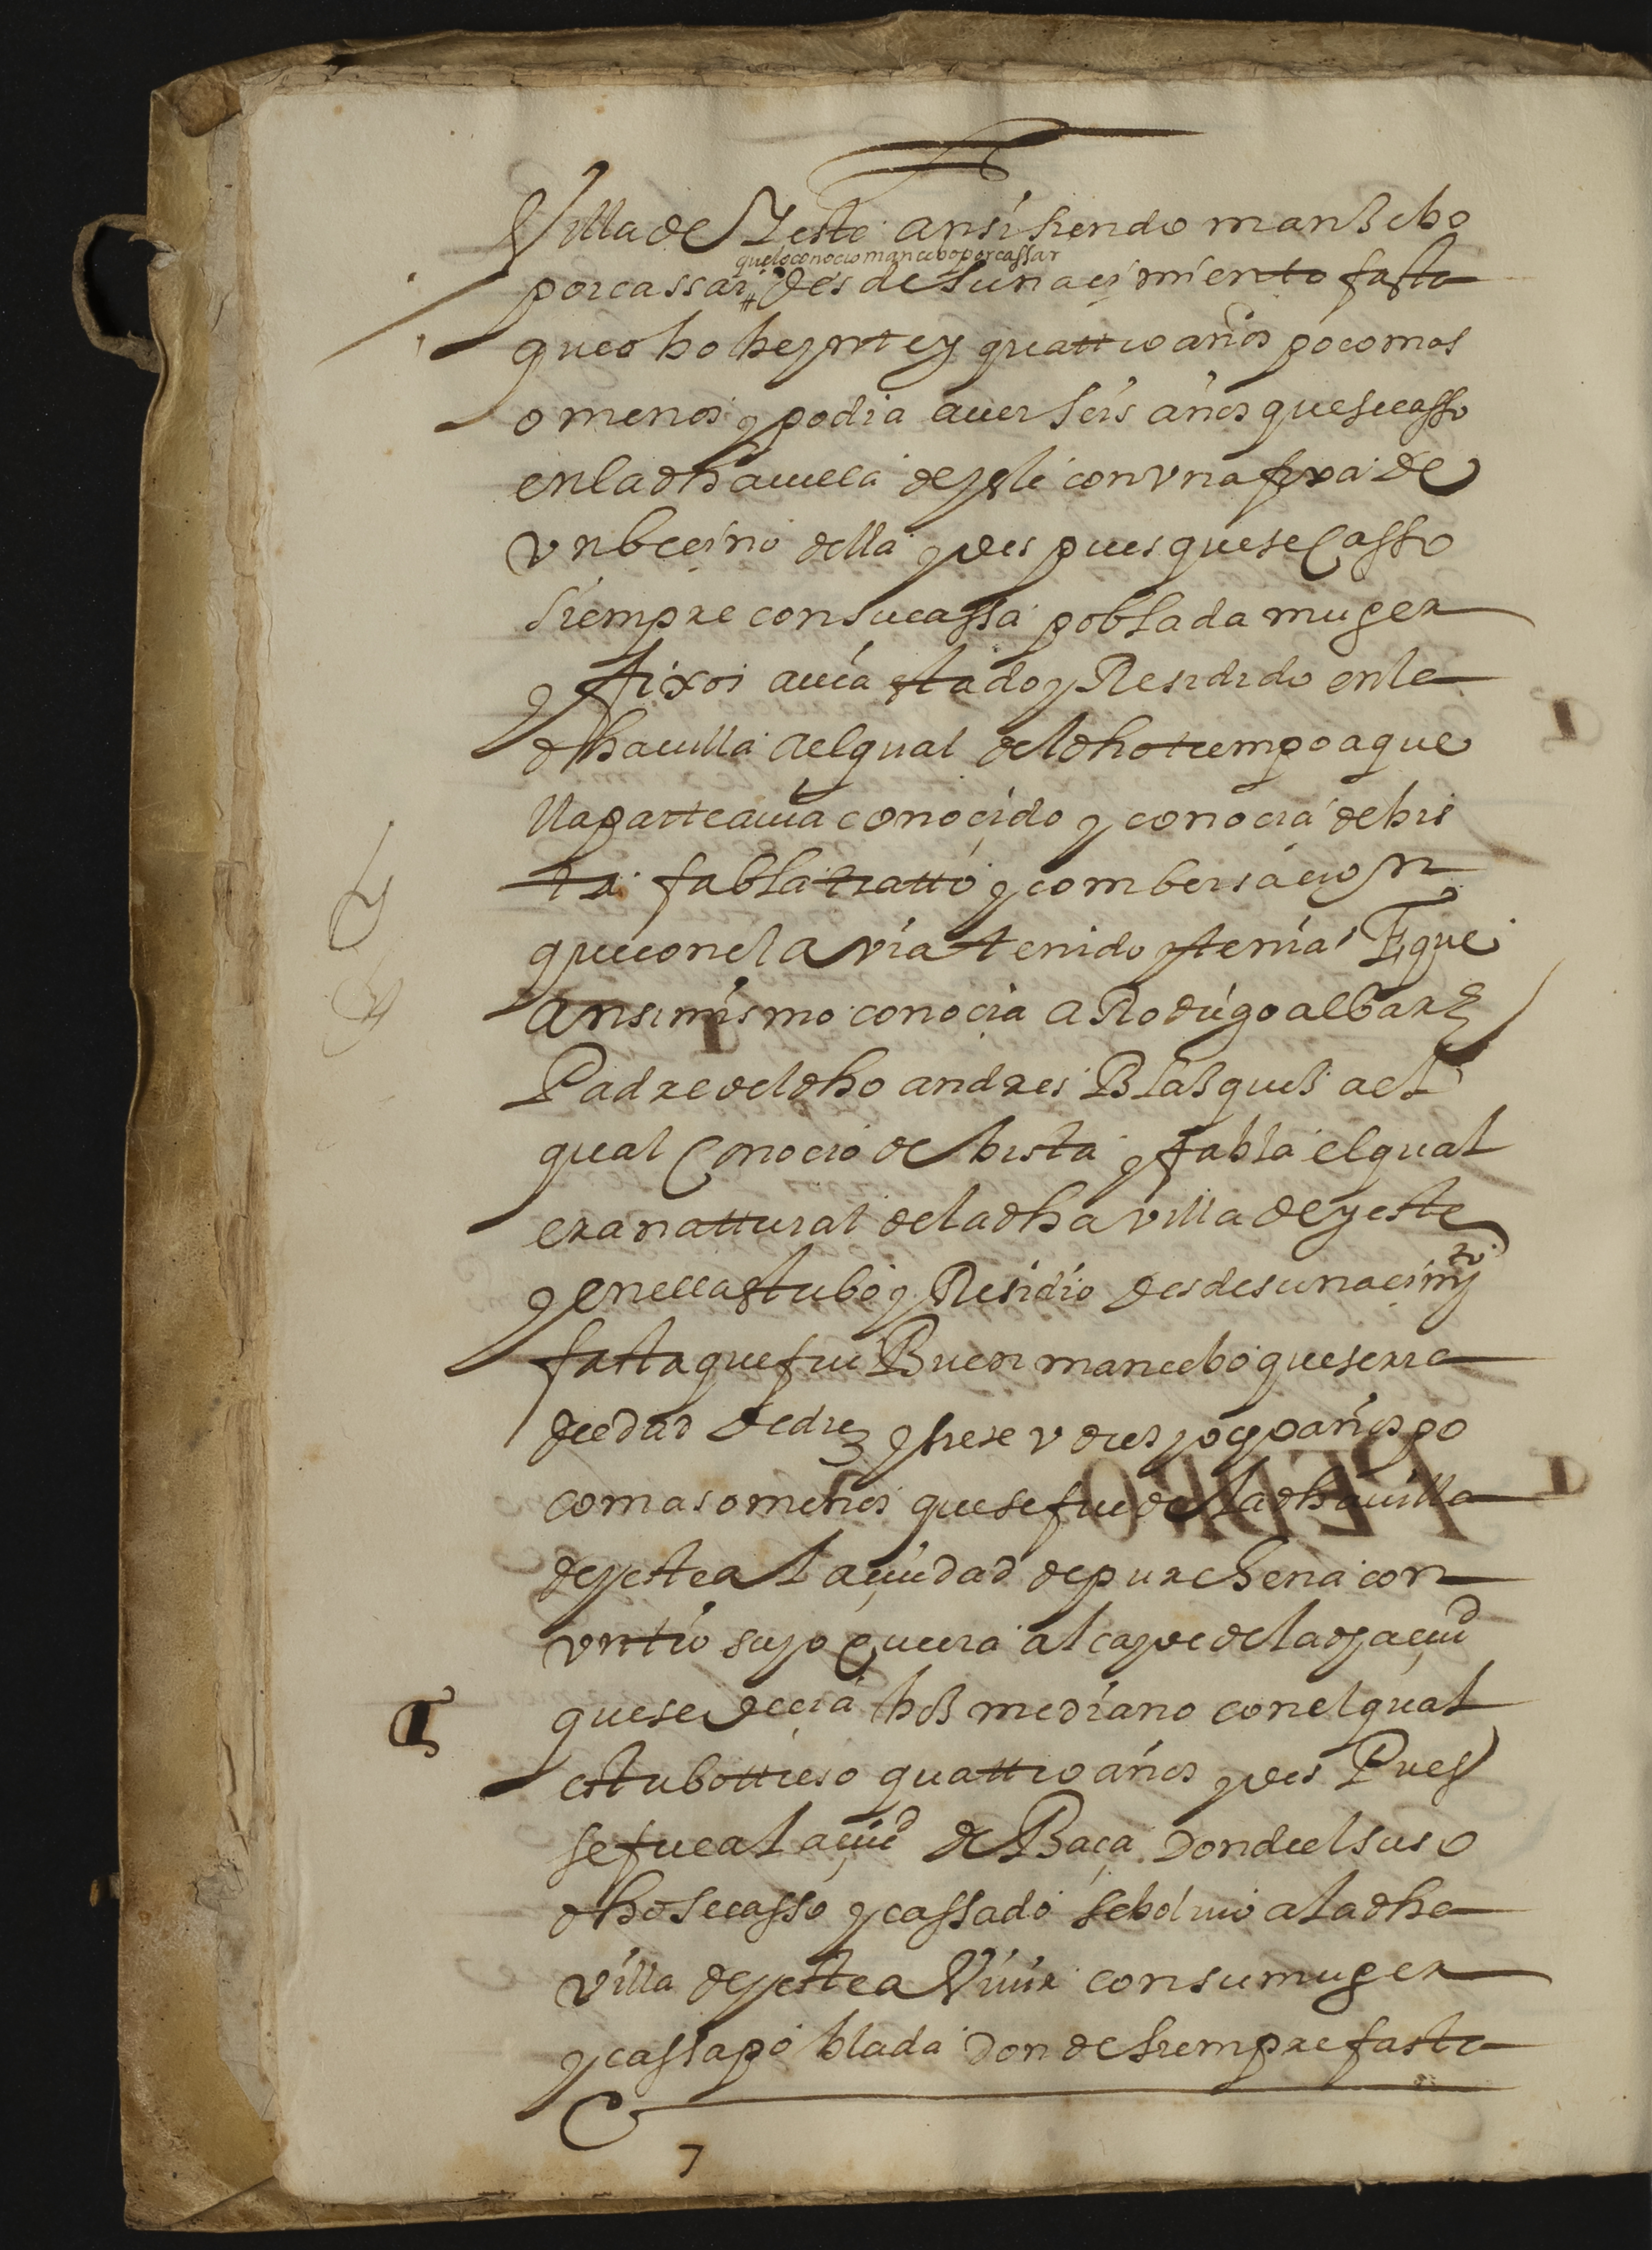 Villa de Yeste ansi siendo manzebo
que lo conocio mancebo por cassar
por cassar desde su nacimiento fasta
que obo beynte y quattro años poco mas
o menos y podia auer seis años que se casso
en la dha uilla de yeste con vna fixa de
vn becino della y des pues que se Casso
siempre con su cassa poblada muger
y fixos auia estado y Residido en la
dha uilla a el qual del dho tiempo a que
lla parte auia conoçido y conocia de bis
ta fabla tratto y combersacion
que con el avia tenido y tenia E que
ansimismo conocia a Rodrigo albarez
Padre del dho andres Blasques a el
qual Conocio de bista y fabla el qual
era nattural de la dha villa de yeste
y en ella estubo y Residio desde su nacimyto
fasta que fue Buen mancebo que seria
de edad de diez y siete v diez y ocho años po
co mas o menos que se fue de la dha uilla
de yeste a la çiudad de purchena con
vn tio suyo que era alcayde de la dha çiud
que se decia mediano con el qual
estubo tres o quattro años y des Pues
se fue a la çiud de Baça Donde el suso
dho se casso y cassado se bolvio a la dha
villa de yeste a Viuir con su muger
y cassa poblada Donde siempre fasta